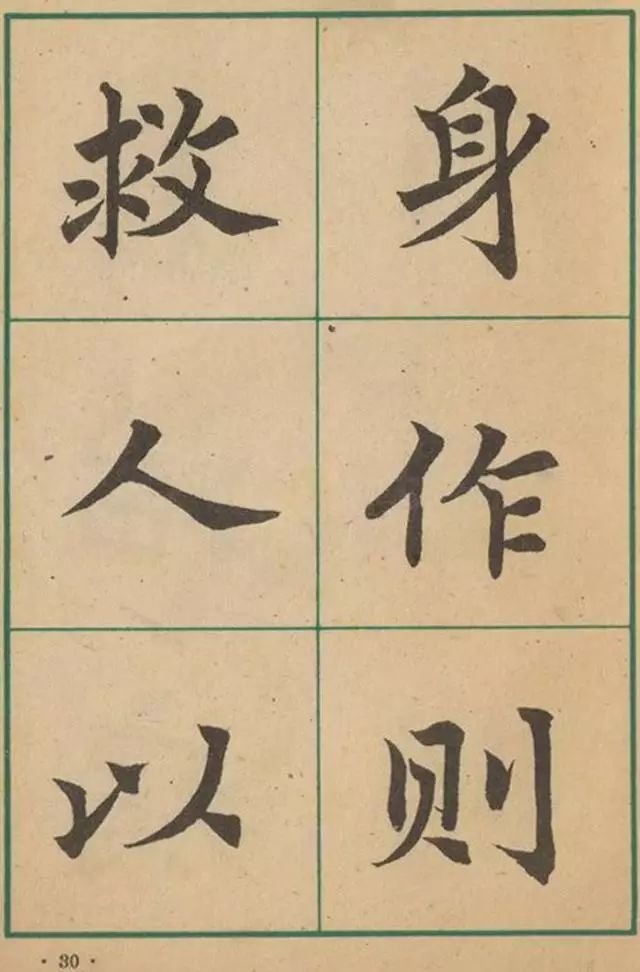 身作则
救人以
· 30 ·